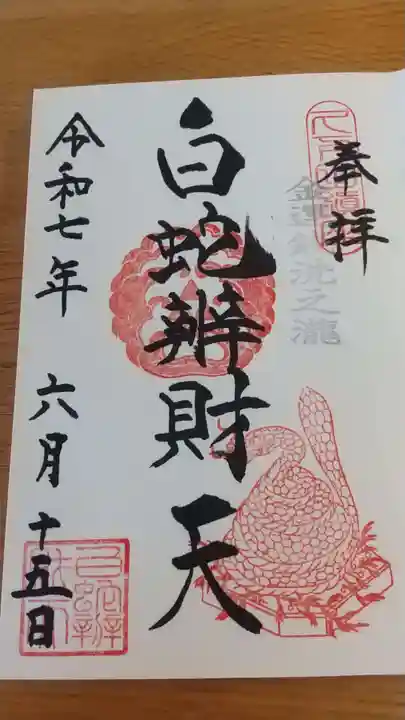 奉拝
金運銭洗之瀧
白蛇辨財天
令和七年 六月 十五日